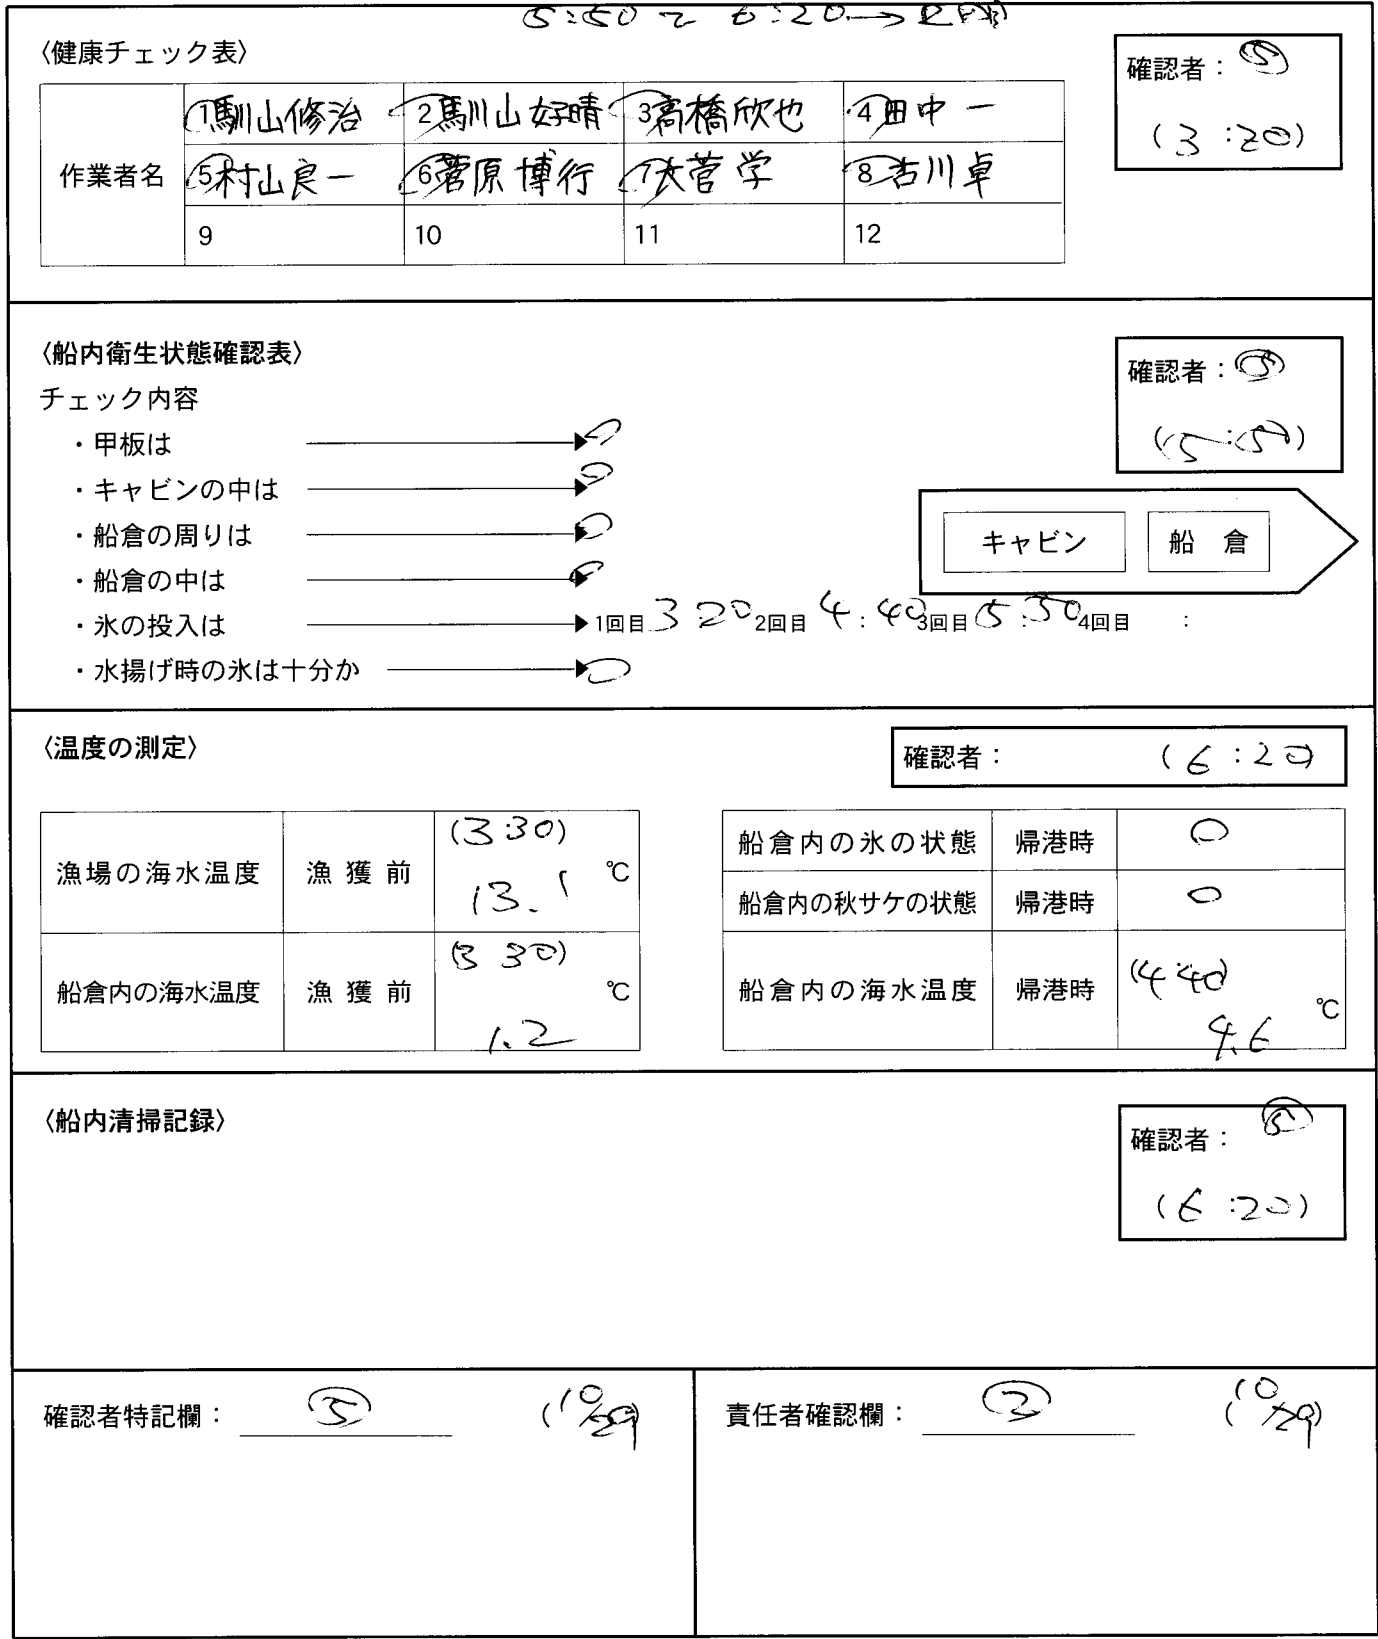 5:50 ~ 6:20 →
〈健康チェック表〉
確認者：⑤
(3:20)
作業者名
1馴山修治 2馴山好晴 3高橋欣也 4田中一
5村山良一 6菅原博行 7大菅学 8古川卓
9 10 11 12
〈船内衛生状態確認表〉
確認者：⑤
(5:50)
チェック内容
・甲板は ○
・キャビンの中は ○
・船倉の周りは ○
・船倉の中は ○
キャビン 船倉
・氷の投入は 1回目 3 20 2回目 4:40 3回目 5:50 4回目 :
・水揚げ時の氷は十分か ○
〈温度の測定〉
確認者： (6:20)
漁場の海水温度 漁獲前 (3:30) 13.1 ℃
船倉内の海水温度 漁獲前 (3 30) 1.2 ℃
船倉内の氷の状態 帰港時 ○
船倉内の秋サケの状態 帰港時 ○
船倉内の海水温度 帰港時 (4:40) 4.6 ℃
〈船内清掃記録〉
確認者：⑤
(6:20)
確認者特記欄：⑤ (10/29)
責任者確認欄：② (10/29)